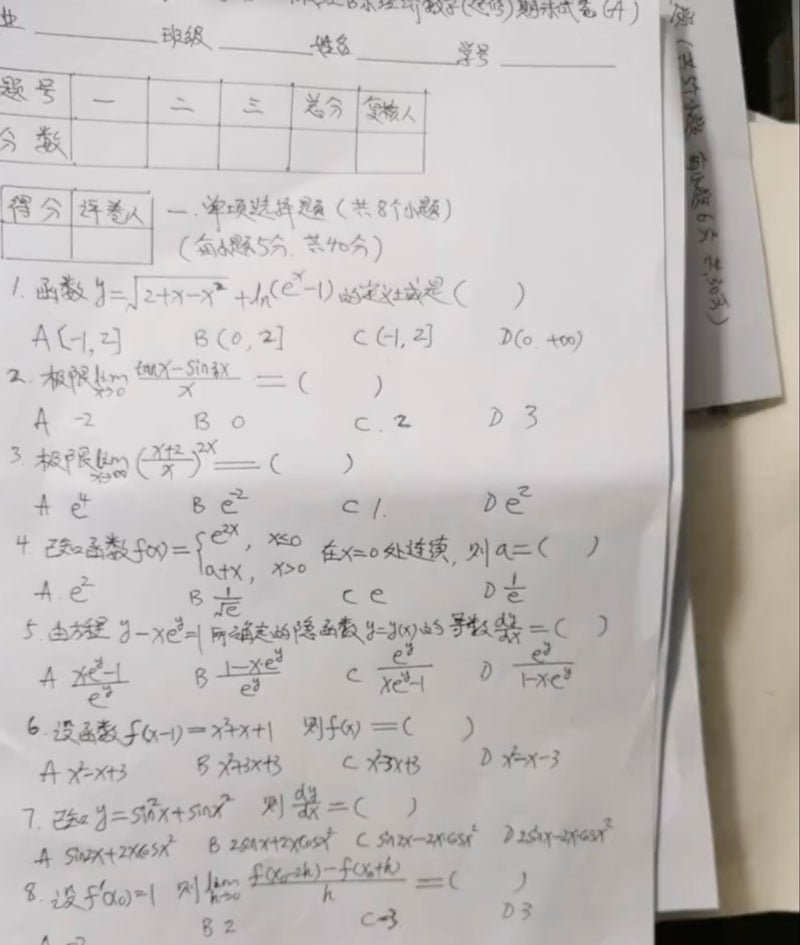 数学(选修)期末试卷(A)
业 班级 姓名 学号
题号 一 二 三 总分 复核人
分数
得分 评卷人 一.单项选择题(共8个小题)
(每小题5分.共40分)
1. 函数 y=√(2+x-x²) +ln(eˣ-1) 的定义域是( )
A[-1,2] B(0,2] C(-1,2] D(0.+∞)
2. 极限 lim x→0 (tanx-sin3x)/x =( )
A -2 B 0 C.2 D 3
3. 极限 lim x→∞ ((x+2)/x)^2x =( )
A e⁴ B e⁻² C 1. D e²
4. 已知函数 f(x)={e^2x, x≤0
a+x, x>0 在x=0处连续,则a=( )
A.e² B 1/√e C e D 1/e
5. 由方程 y-xe^y=1 所确定的隐函数y=y(x)的导数 dy/dx=( )
A (x·e^y-1)/e^y B (1-x·e^y)/e^y C e^y/(xe^y-1) D e^y/(1-x·e^y)
6. 设函数f(x-1)=x²+x+1 则f(x)=( )
A x²-x+3 B x²+3x+3 C x²-3x+3 D x²-x-3
7. 已知 y=sin²x+sinx² 则 dy/dx=( )
A sin2x+2xcosx² B 2sinx+2xcosx² C sin2x-2x·cosx² D 2sinx-2x·cosx²
8. 设f'(x₀)=1 则 lim h→0 (f(x₀-2h)-f(x₀+h))/h =( )
B 2 C -3 D 3
每小题6分 共30分)